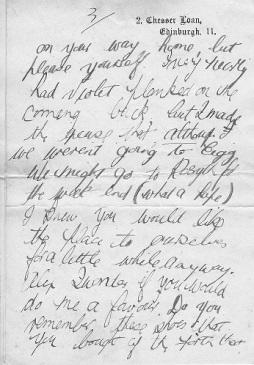 3/
2. Chesser Loan,
Edinburgh, 11.
on your way home, but
please yourself. They nearly
had Violet planked on the
coming back, but I made
the excuse that although
we weren't going to Eigg
we might go to Rosyth for
the week end (what a hope)
I knew you would like
the place to ourselves
for a little while anyway.
I wonder if you would
do me a favour. Do you
remember these shoes that
you bought at the North that